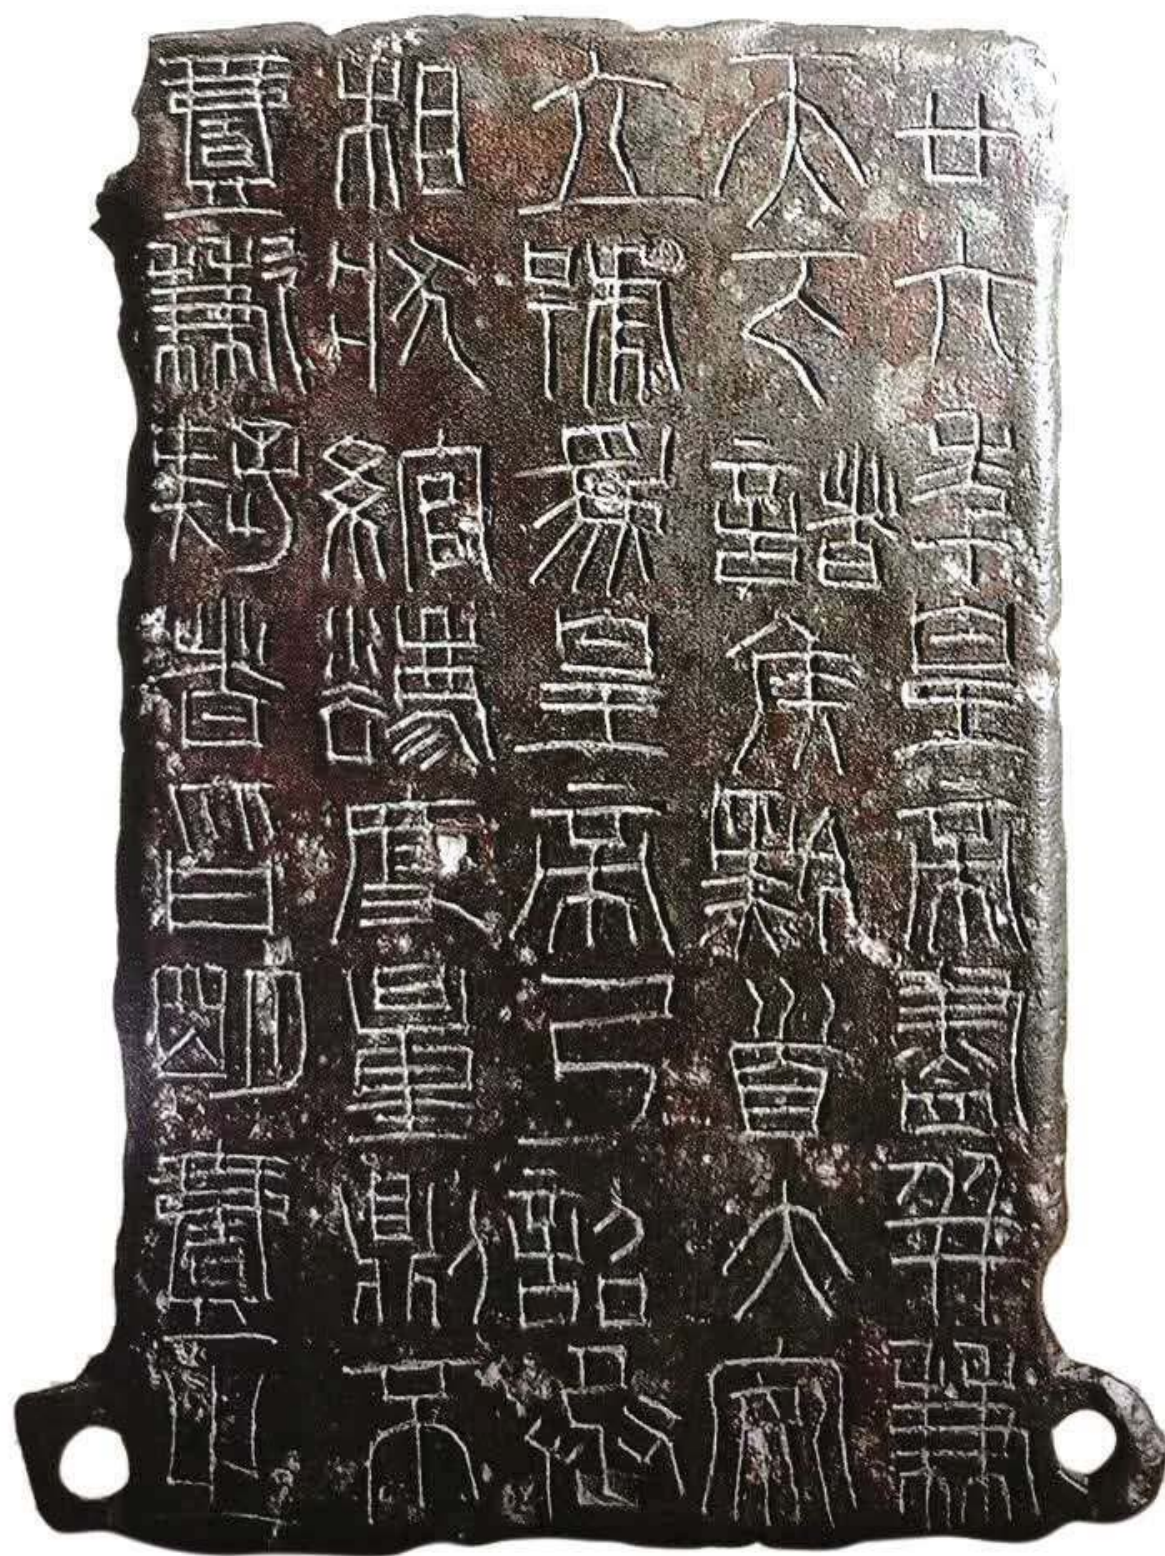 廿六年皇帝盡并兼
天下諸矦黔首大安
立號爲皇帝乃詔丞
相狀綰灋度量鼎不
壹歉疑者皆明壹之